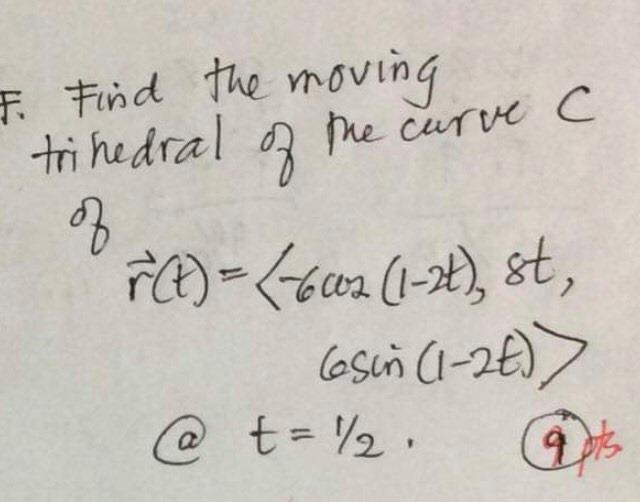 F. Find the moving
trihedral of the curve C
of
r⃗(t) = ⟨-6cos(1-2t), 8t,
6sin(1-2t)⟩
@ t = 1/2 . 9 pts